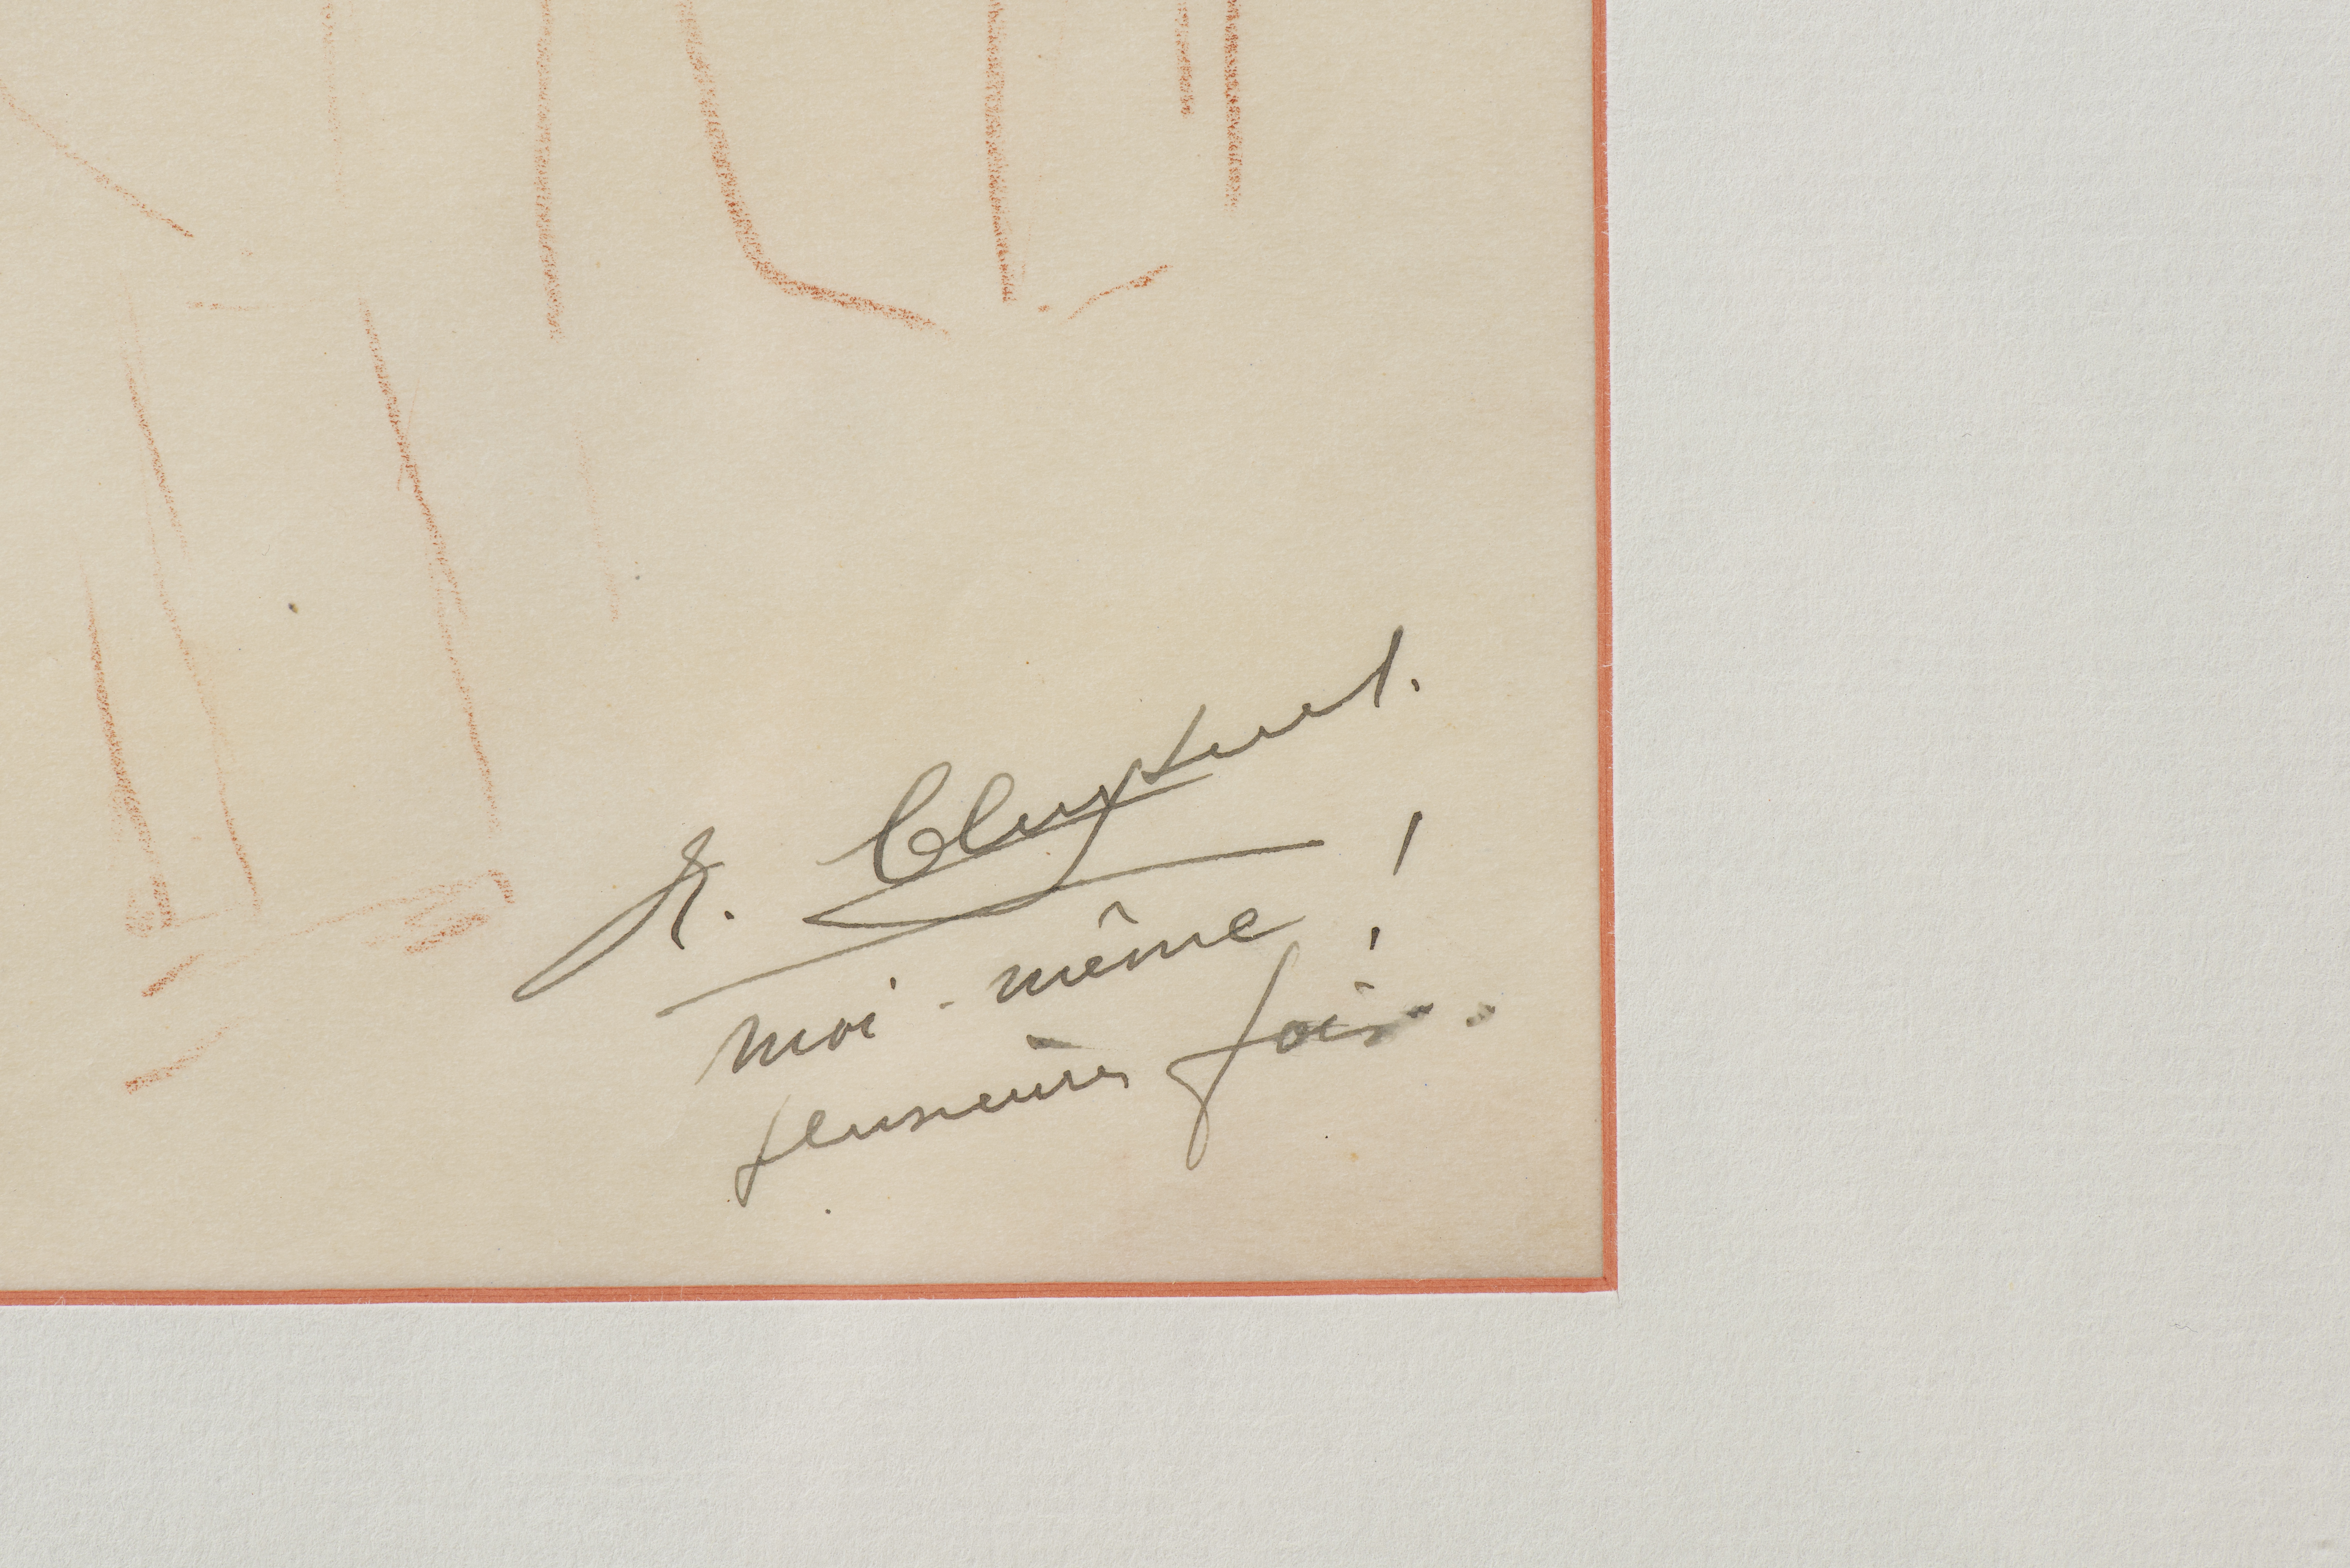 R. Cluysenaer.
moi-même !
plusieurs fois.